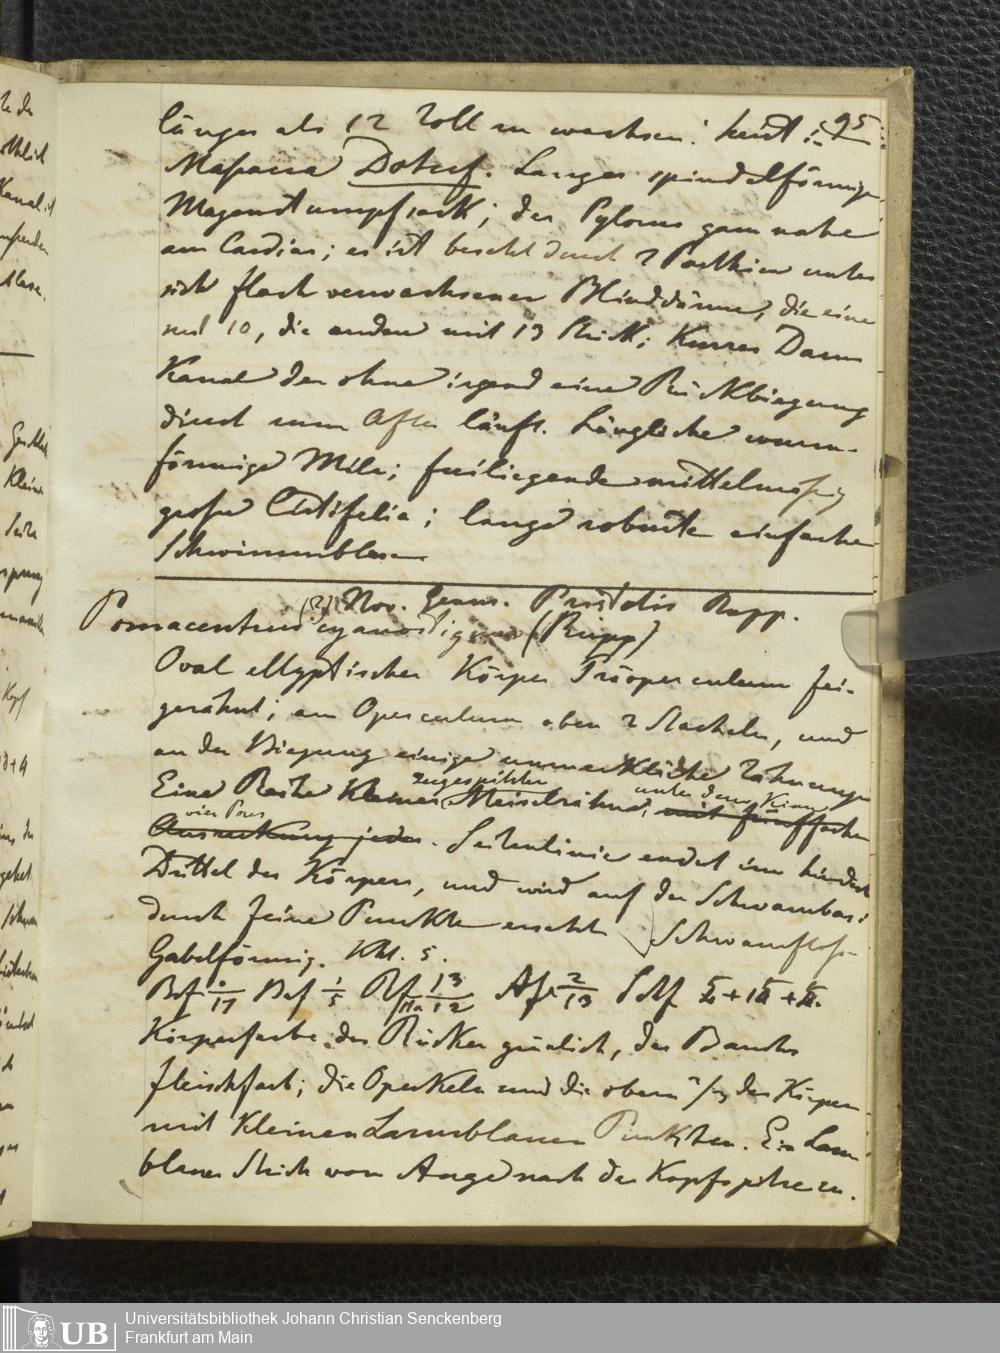 95
länger als 12 Zoll zu wachsen. heist in
Massaua Dotuf. Langer spindelförmiger
Magenstumpfsack; der Pylorus ganz nahe
am Cardias; es ist besetzt durch 2 Parthien unter
sich flach verwachsener Blinddärme, die eine
mit 10, die andere mit 13 Stück; Kurzer Darm
Kanal der ohne irgend eine Rückbiegung
direct zum After läuft. Längliche wurm-
förmige Milz; freiliegende mittelmäsig
grose lange robuste einfache
Schwimmblase
(2) Nov. Genus. Pristotis Rüpp.
Pomacentrus cyanostigma (Rüpp)
Oval elliptischer Körper Präoperculum fein
gezähnt; am Operculum oben 2 Stacheln, und
an der Biegung einige unmerkliche Zähnungen
zugespitzter unter dem Kinn
Eine Reihe Kleiner Meiselzähne, mit fünffacher
vier Pores
Auszackung jeder. Seitenlinie endet im hinder
Drittel des Körpers, und wird auf der Schwanzbasis
durch feine Punkte ersetzt Schwanzflosse
Gabelförmig. Kht. 5.
Brf 17 Bf 1/5 Rf 13/12 Af 2/13
Körperfarbe des Rücken grünlich, des Bauchs
fleischfarb; die Operkeln und die obern des Körpers
mit Kleinen Lazurblauen Punkten. Ein Lazur
blauer Strich vom Auge nach der Kopfspitze zu.
Universitätsbibliothek Johann Christian Senckenberg
Frankfurt am Main
UB